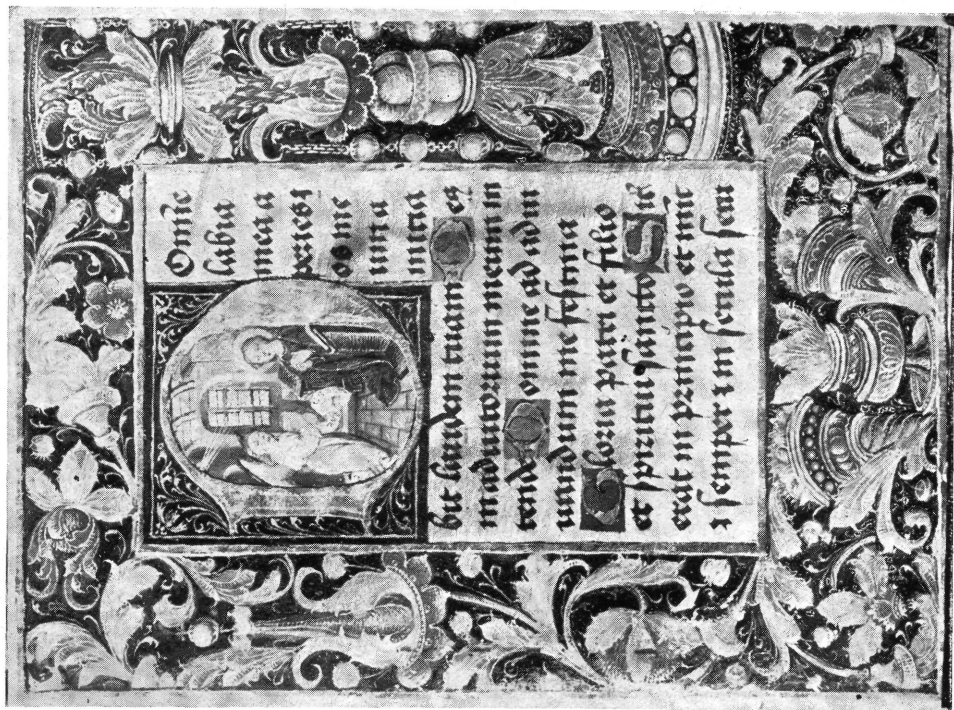 Omīe
labia
mea a
peries ⁊
os me
um a
nūcia
bit laudem tuam Des
in adiutorium meum in
tende Domine ad adiu
uandum me festina
Gloria patri et filio
et spiritui sancto Sic̄
erat in principio et nūc
⁊ semper ⁊ in secula secu